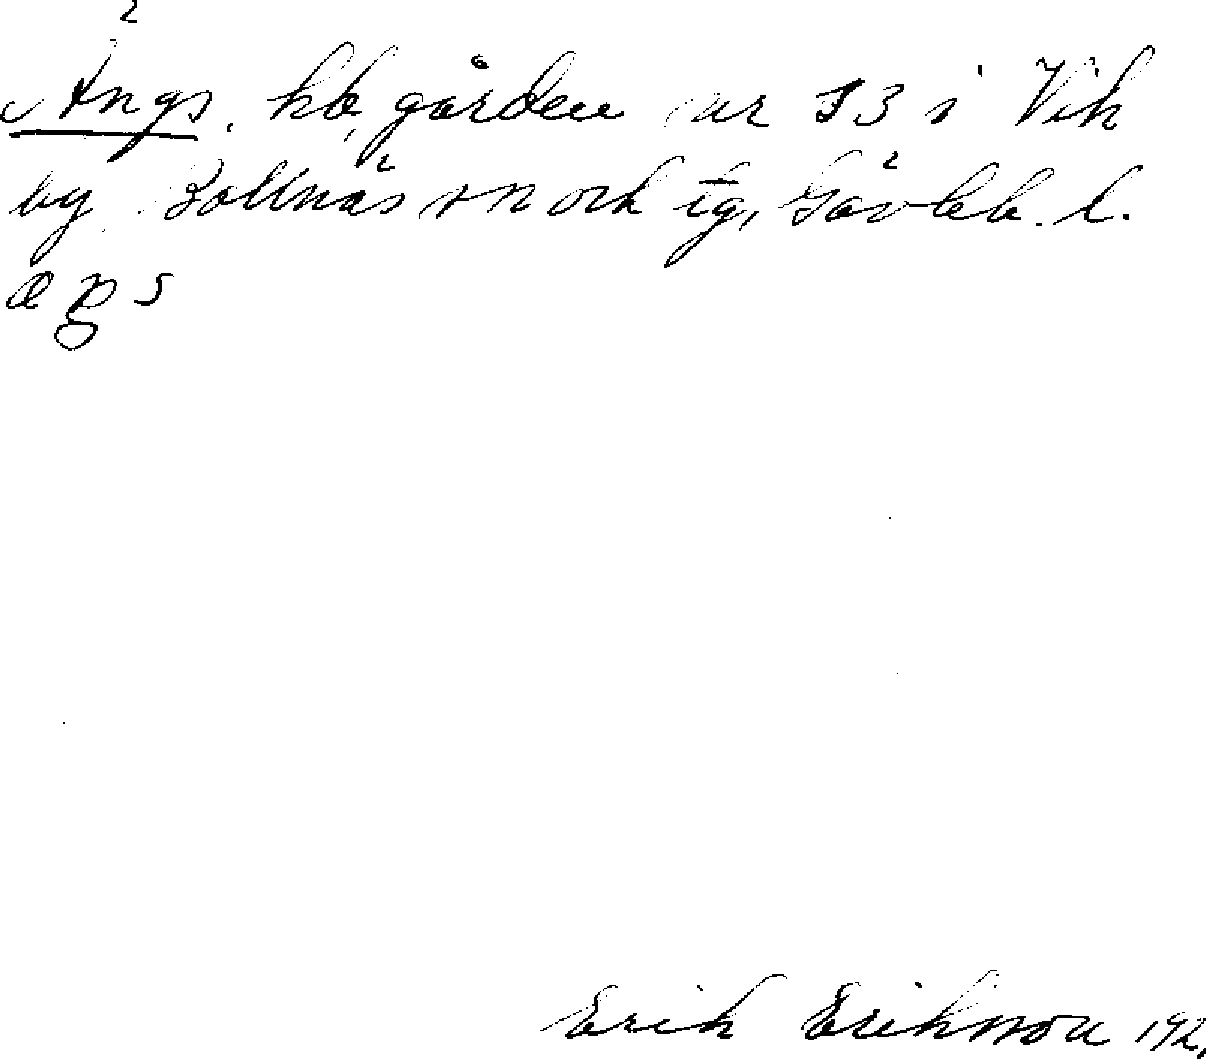 Ängs, hb, gården nr 33 i Vik
by. Bollnäs sn och tg, Gävleb. l.
Erik Eriksson 192